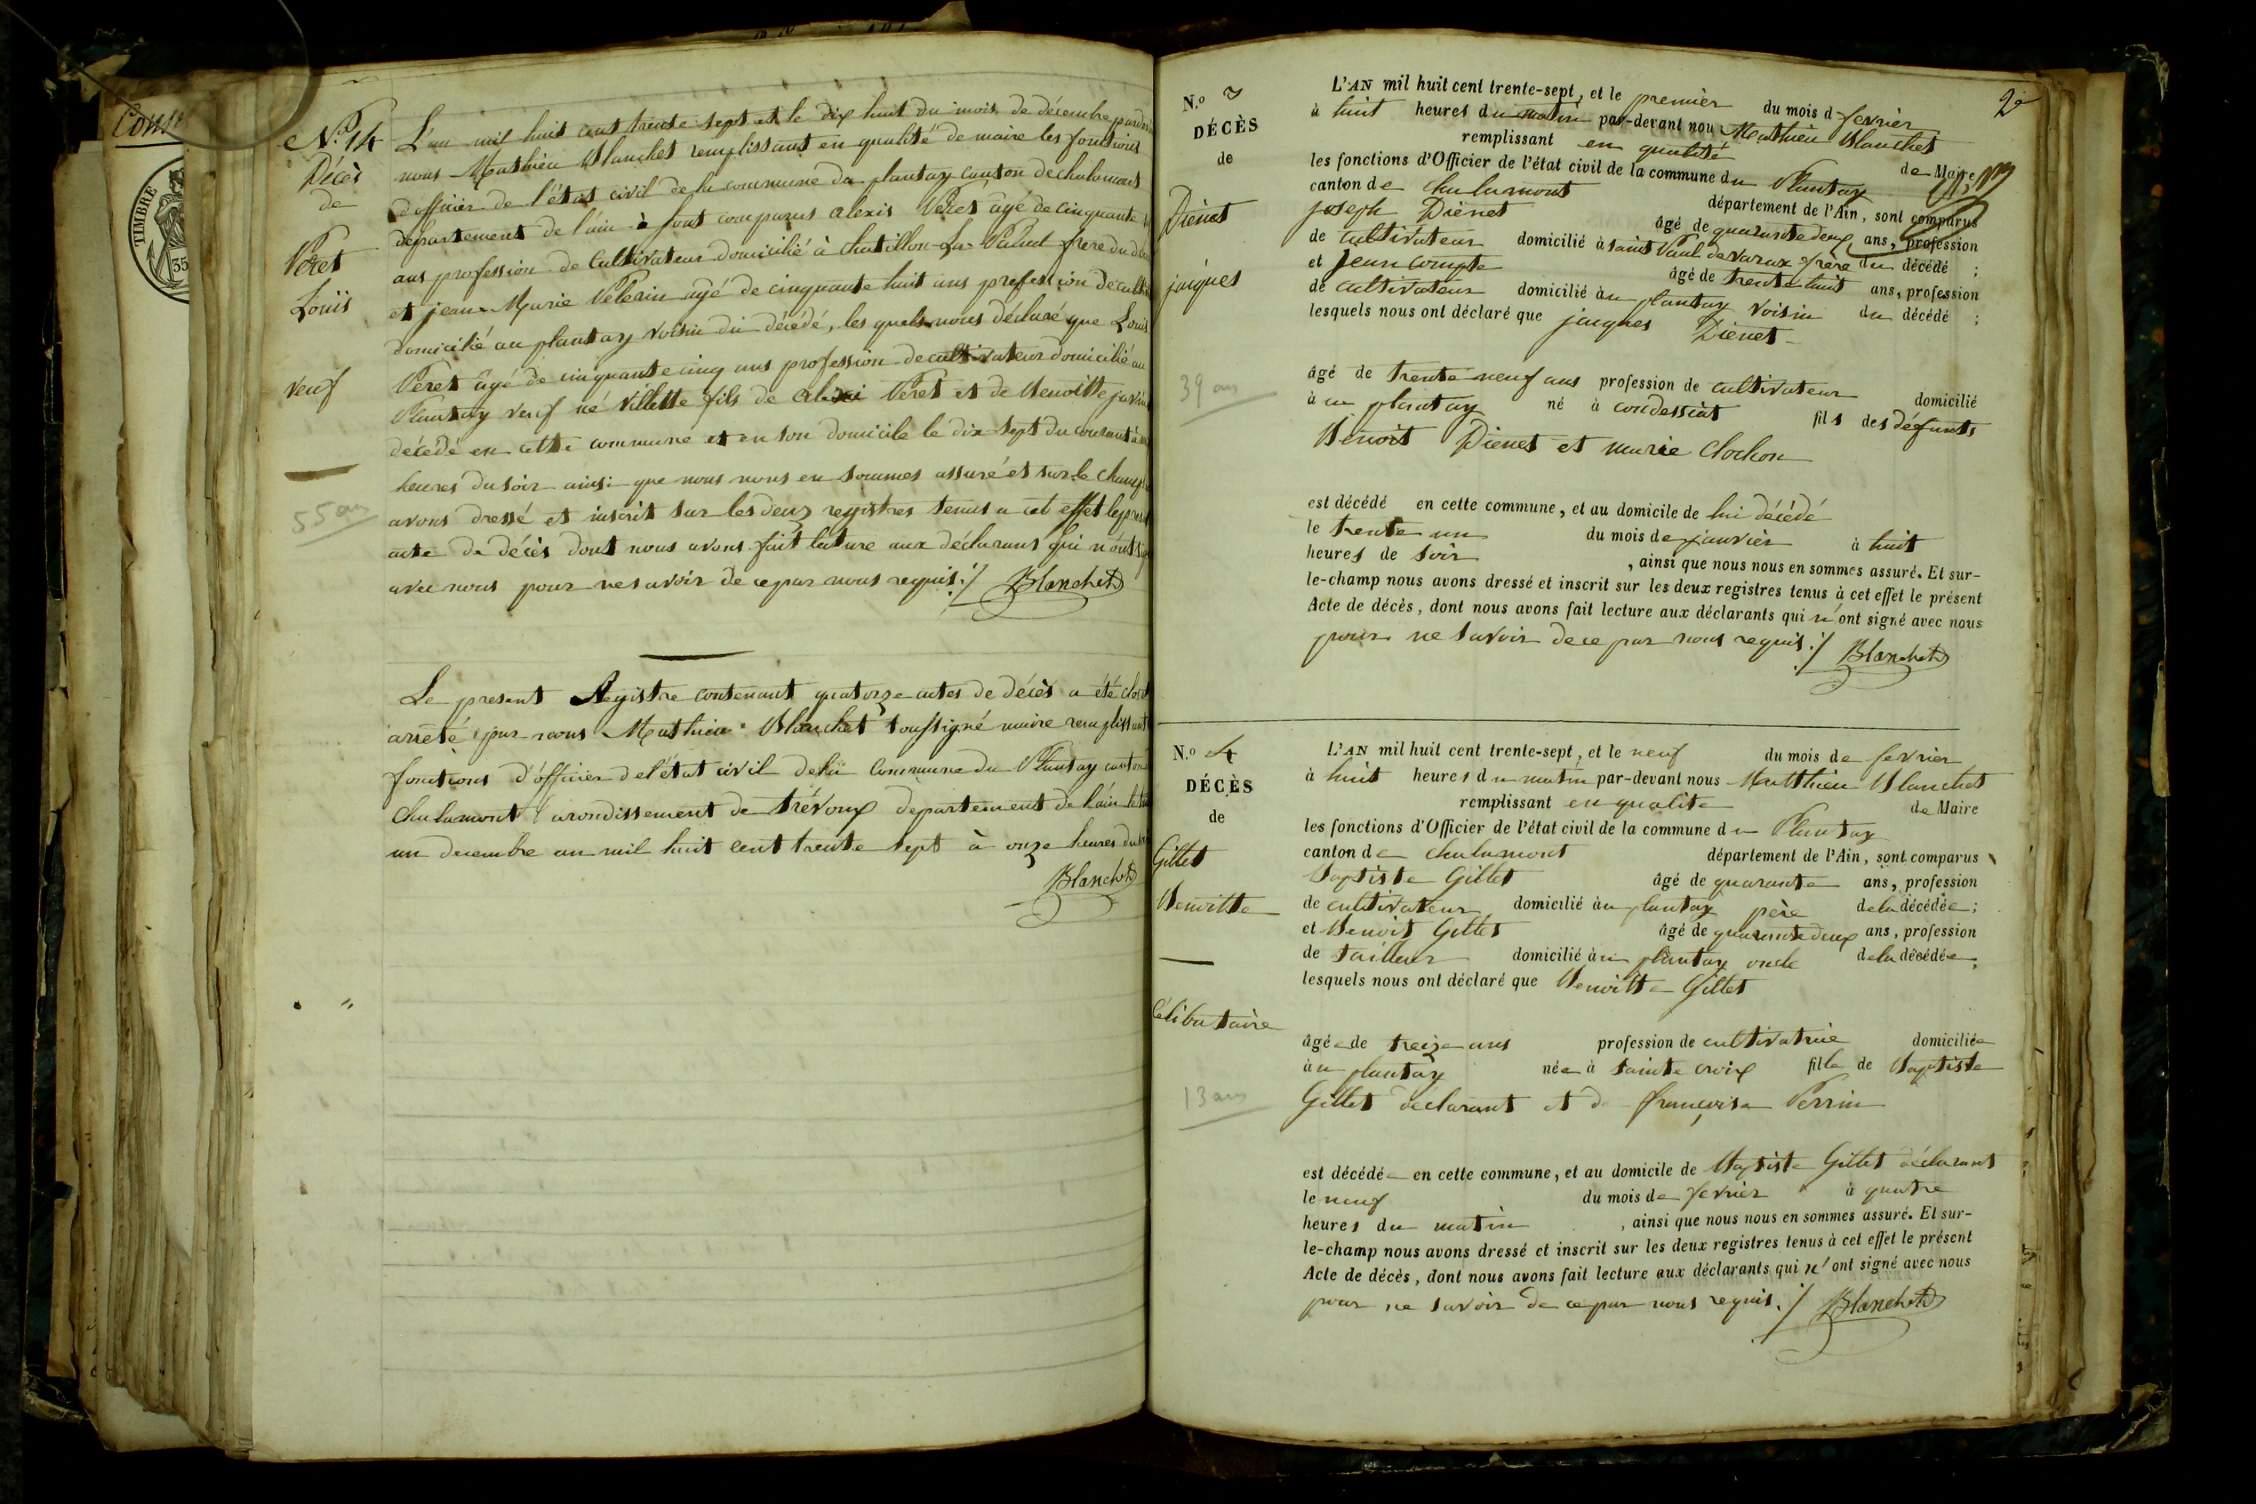 TIMBRE
35
N.º 14
Décès
de
Péret
Louis
veuf
55 ans
L'an mil huit cent trente sept et le dix huit du mois de décembre pardev
nous Mathieu Blanchet remplissant en qualité de maire les fonctions
d'officier de l'état civil de la commune du plantay canton de chalamont
département de l'ain sont comparus alexis Péret âgé de cinquante
ans profession de Cultivateur domicilié à chatillon-La-Palud frere du
et jean Marie Pelerin agé de cinquante huit ans profession de culti
domicilié au plantay voisin du décédé, les quels nous déclaré que Louis
Péret âgé de cinquante cinq ans profession de cultivateur domicilié au
Plantay veuf né Villette fils de Péret et de Benoitte
décédé en cette commune et en son domicile le dix-sept du courant à
heures du soir ainsi que nous nous en sommes assuré et sur-le champ
avons dressé et inscrit sur les deux registres tenus a cet effet le pres
acte de décès dont nous avons fait lecture aux déclarans qui n'ont sig
avec nous pour ne savoir de ce par nous requis ./ Blanchet
Le present Registre contenant quatorze actes de décès a été clos
arrêté par nous Mathieu Blanchet soussigné maire remplissant
fonctions d'officier de l'état civil de la Commune du Plantay canton
Chalamont arondissement de Trévoux departement de l'ain le
un decembre an mil huit cent trente sept à onze heures du
Blanchet
2e
N.º 3
DÉCÈS
de
Diénet
jacques
39 ans
L'AN mil huit cent trente-sept, et le premier du mois d fevrier
à huit heures du matin par-devant nou Mathieu Blanchet
remplissant en qualité de Maire
les fonctions d'Officier de l'état civil de la commune du Plantay
canton de chalamont département de l'Ain, sont comparus
joseph Diénet âgé de quarante deux ans, profession
de cultivateur domicilié à saint Paul de varax frère du décédé ;
et jean compte âgé de trente huit ans, profession
de cultivateur domicilié au plantay voisin du décédé ;
lesquels nous ont déclaré que jacques Diénet
âgé de trente neuf ans profession de cultivateur domicilié
à au plantay né à condessiat fils des défunts
Benoit Diénet et marie Clochon
est décédé en cette commune, et au domicile de lui décédé
le trente un du mois de janvier à huit
heures de soir , ainsi que nous nous en sommes assuré. Et sur-
le-champ nous avons dressé et inscrit sur les deux registres tenus à cet effet le présent
Acte de décès, dont nous avons fait lecture aux déclarants qui n'ont signé avec nous
pour ne savoir de ce par nous requis ./ Blanchet
N.º 4
DÉCÈS
de
Gillet
Benoitte
Célibataire
13 ans
L'AN mil huit cent trente-sept, et le neuf du mois de fevrier
à huit heures du matin par-devant nous Matthieu Blanchet
remplissant en qualite de Maire
les fonctions d'Officier de l'état civil de la commune du Plantay
canton de chalamont département de l'Ain, sont comparus
Baptiste Gillet âgé de quarante ans, profession
de cultivateur domicilié au plantay père de la décédée ;
et Benoit Gillet âgé de quarante deux ans, profession
de tailleur domicilié au plantay oncle de la décédée ;
lesquels nous ont déclaré que Benoitte Gillet
âgée de treize ans profession de cultivatrice domiciliée
au plantay née à sainte croix fille de Baptiste
Gillet déclarant et de françoise Perrin
est décédée en cette commune, et au domicile de Baptiste Gillet déclarant
le neuf du mois de fevrier à quatre
heures du matin , ainsi que nous nous en sommes assuré. Et sur-
le-champ nous avons dressé et inscrit sur les deux registres tenus à cet effet le présent
Acte de décès, dont nous avons fait lecture aux déclarants qui n'ont signé avec nous
pour ne savoir de ce par nous requis ./ Blanchet